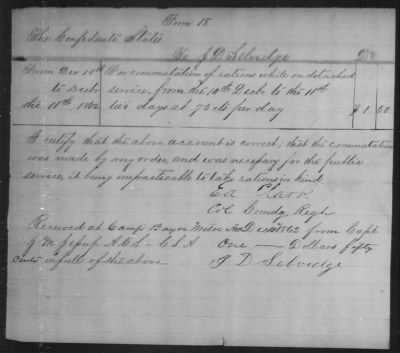 Form 18
The Confederate States
To J. D. Selvidge Dr
From Dec 10th For commutation of rations while on detached
to Decbr service, from the 10th Decbr to the 11th
the 11th 1862 two days at 75 cts per day $1 50
I certify that the above account is correct; that the commutation
was made by my order, and was necessary for the public
service, it being impracticable to take rations in kind
E A Clark
Col Comdg Regt
Received at Camp Bayou Dec 1862 from Capt
J. M. A.C.S. C.S.A One — Dollars fifty
cents in full of the above
J D Selvidge